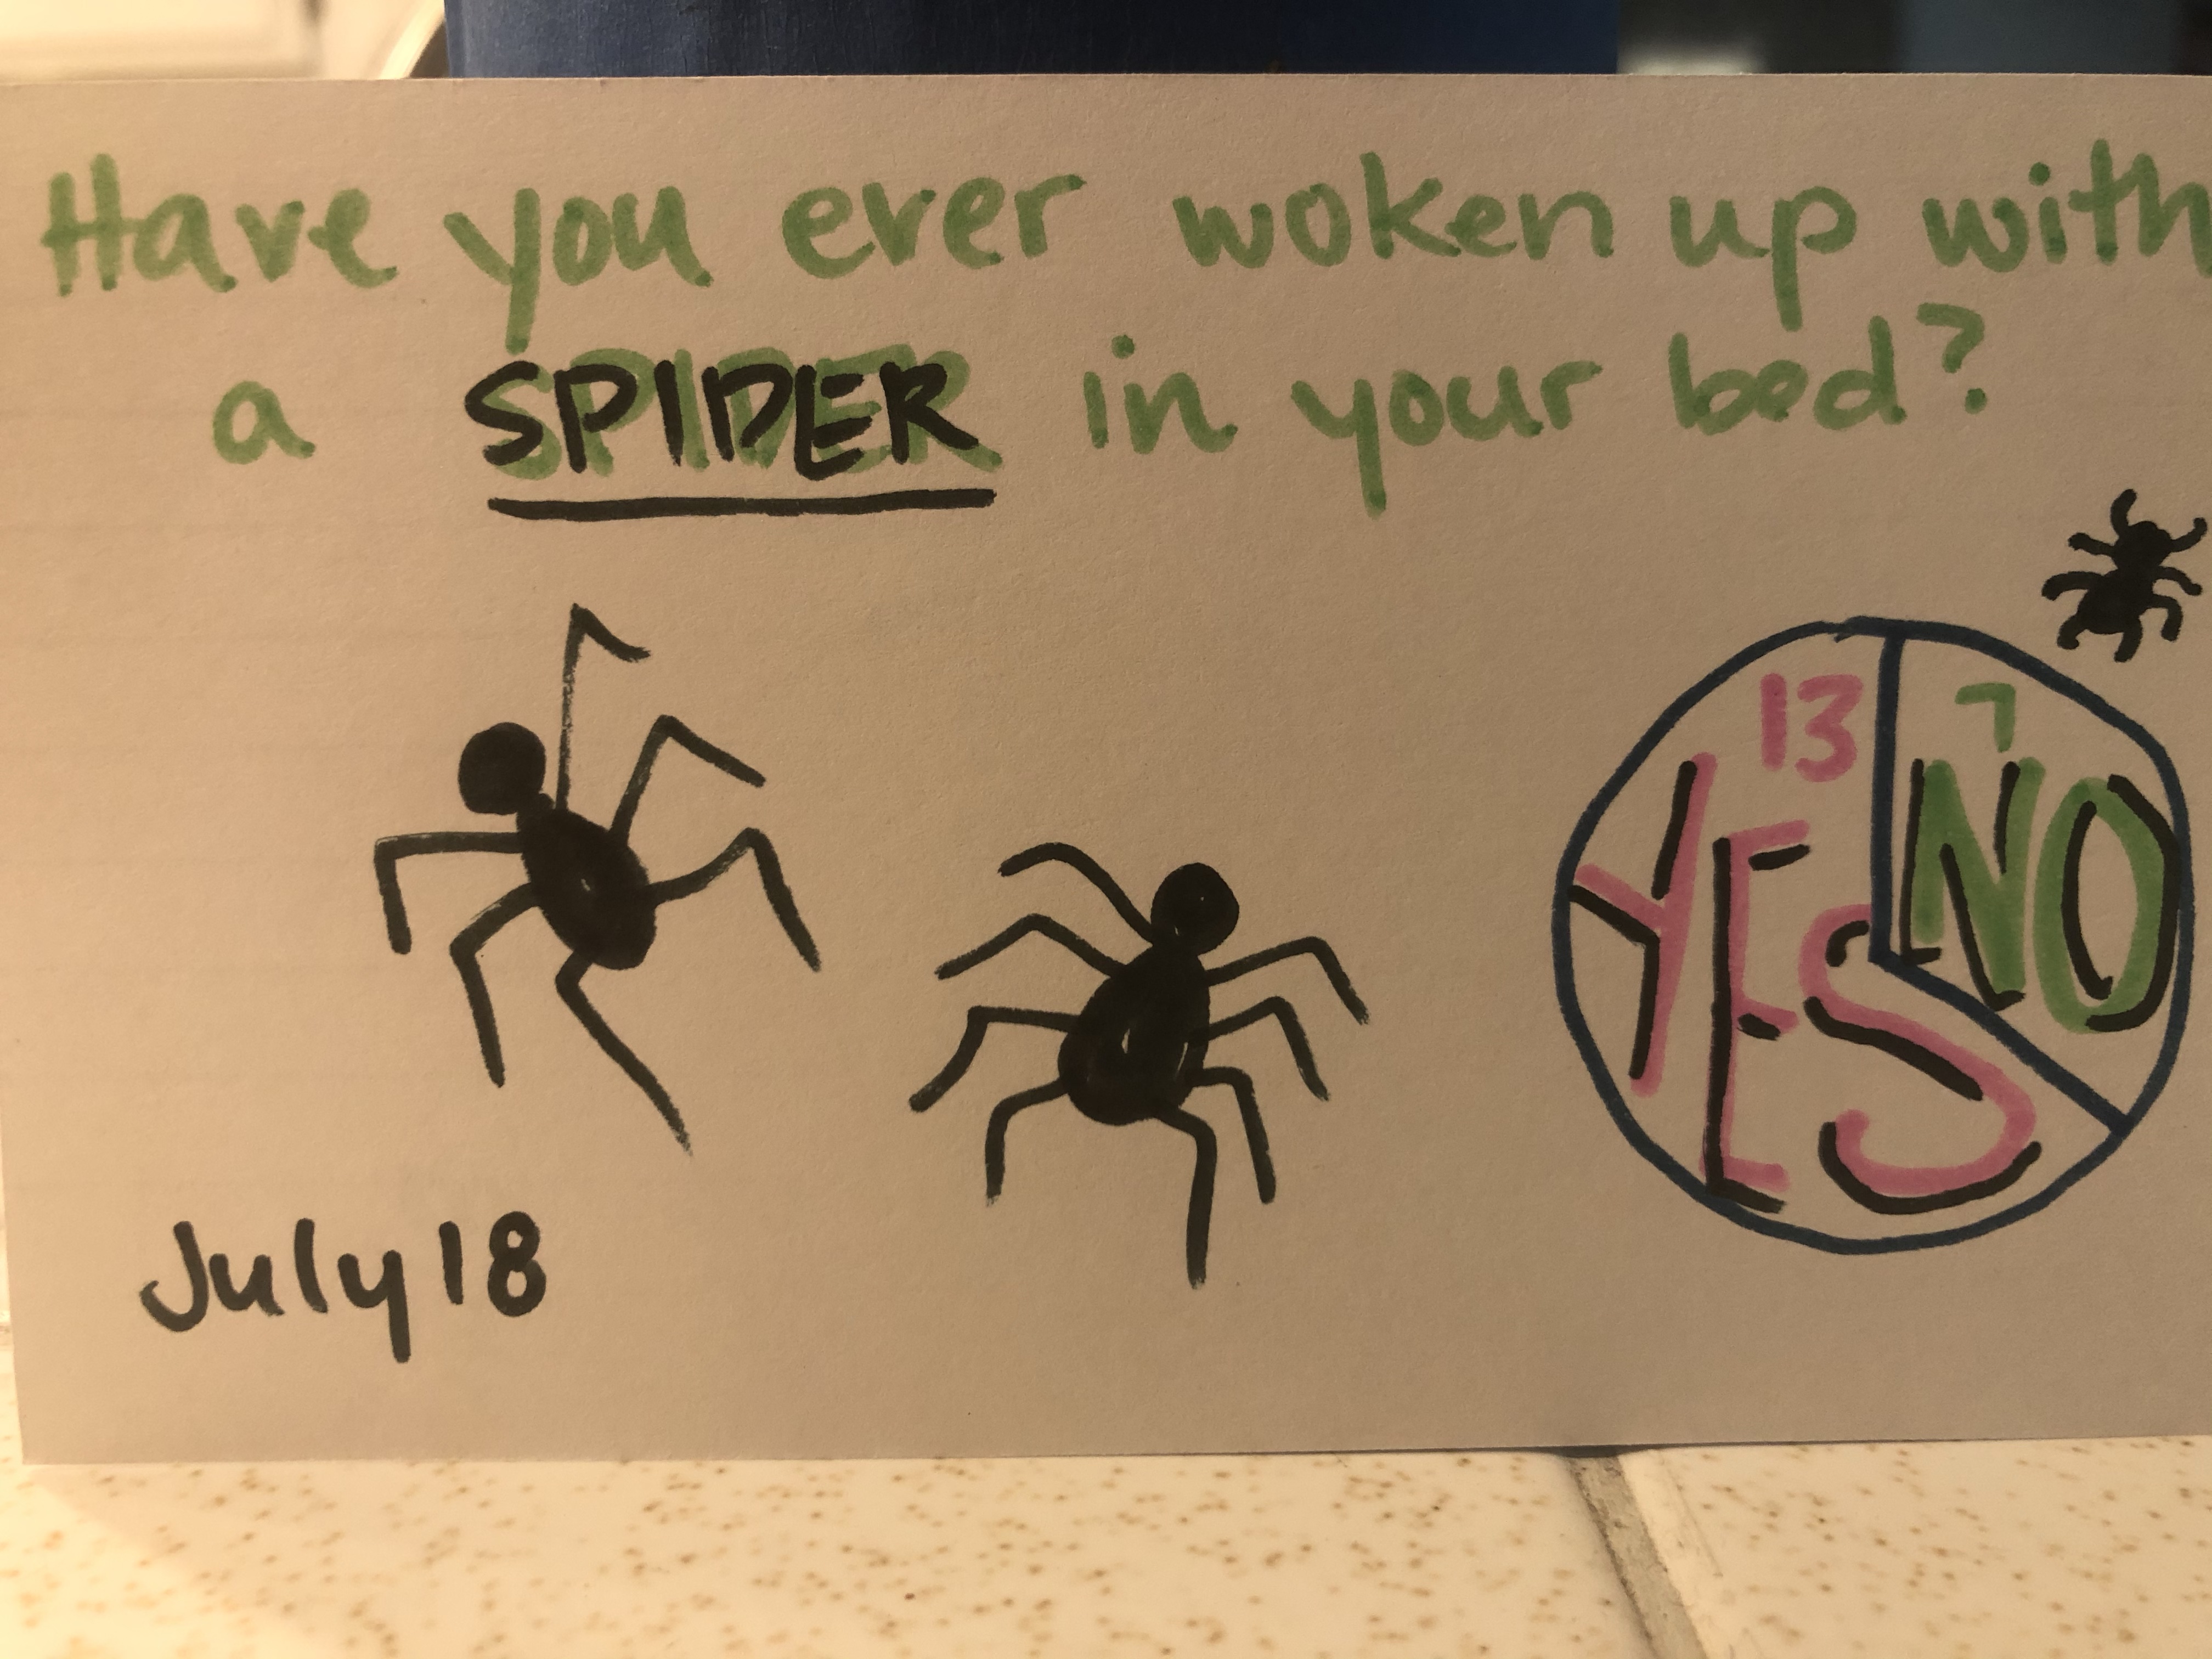 Have you ever woken up with
a SPIDER in your bed?
13 7
YES NO
July 18